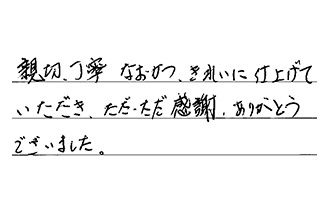 親切、丁寧 なおかつ、きれいに仕上げて
いただき、ただ・ただ感謝、ありがとう
ございました。